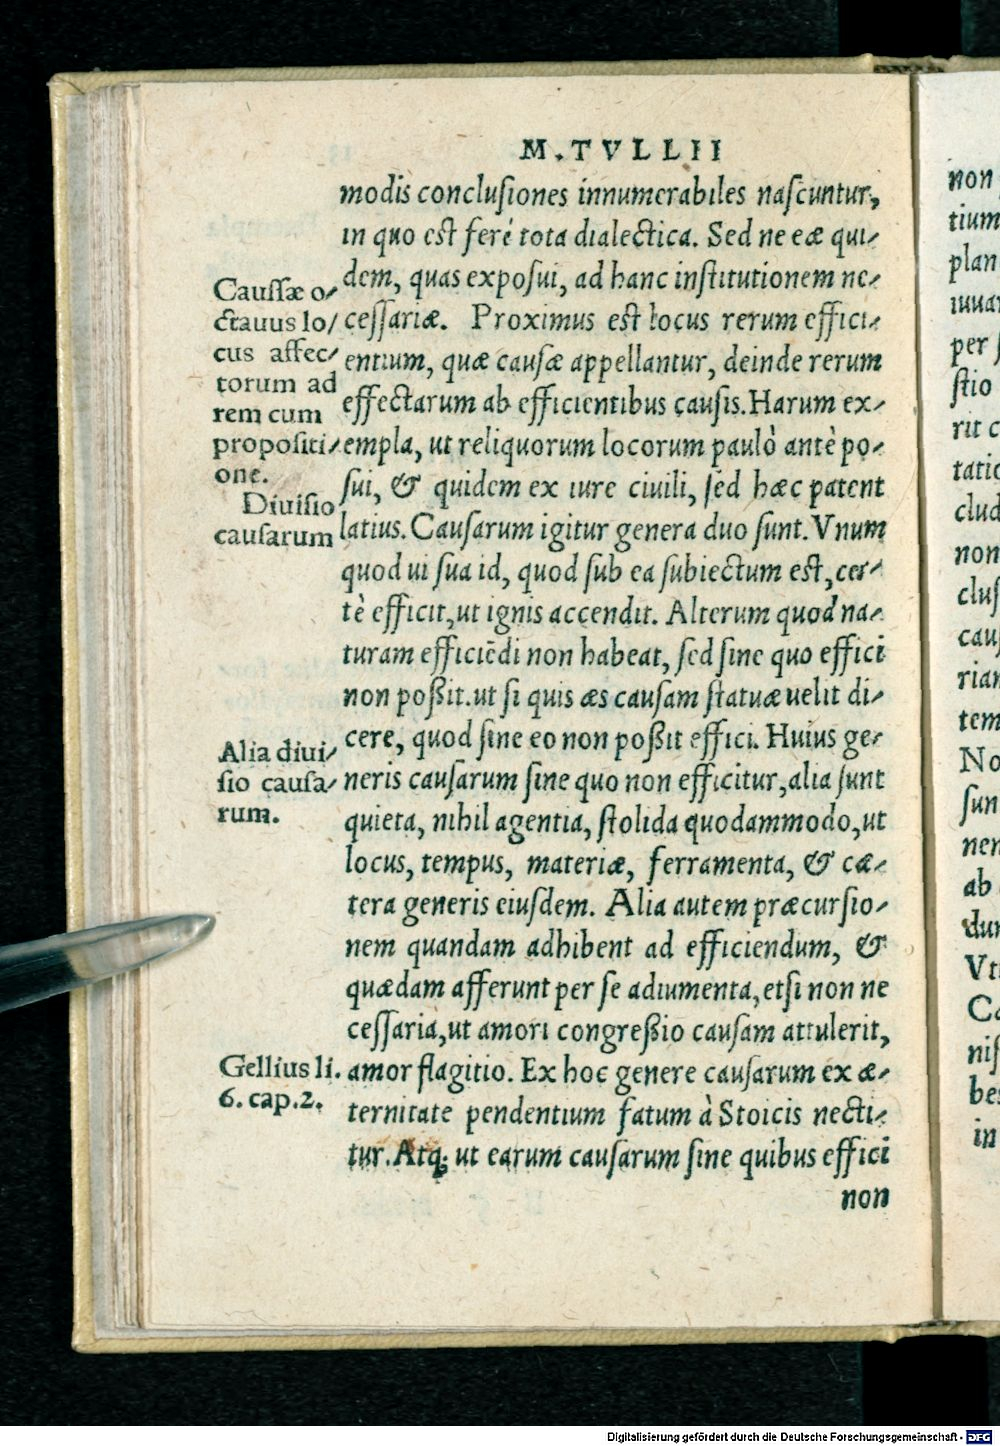 M. TVLLII
modis conclusiones innumerabiles nascuntur,
in quo est ferè tota dialectica. Sed ne eæ qui-
dem, quas exposui, ad hanc institutionem ne-
cessariæ. Proximus est locus rerum effici-
entium, quæ causæ appellantur, deinde rerum
effectarum ab efficientibus causis. Harum ex-
empla, ut reliquorum locorum paulò antè po-
sui, & quidem ex iure ciuili, sed hæc patent
latius. Causarum igitur genera duo sunt. Vnum
quod ui sua id, quod sub ea subiectum est, cer-
tè efficit, ut ignis accendit. Alterum quod na-
turam efficiẽdi non habeat, sed sine quo effici
non poßit. ut si quis æs causam statuæ uelit di-
cere, quod sine eo non poßit effici. Huius ge-
neris causarum sine quo non efficitur, alia sunt
quieta, nihil agentia, stolida quodammodo, ut
locus, tempus, materiæ, ferramenta, & cæ-
tera generis eiusdem. Alia autem præcursio-
nem quandam adhibent ad efficiendum, &
quædam afferunt per se adiumenta, etsi non ne
cessaria, ut amori congreßio causam attulerit,
amor flagitio. Ex hoc genere causarum ex æ-
ternitate pendentium fatum à Stoicis necti-
tur. Atq; ut earum causarum sine quibus effici
non
Caussæ o-
ctauus lo-
cus affec-
torum ad
rem cum
propositi-
one.
Diuisio
causarum
Alia diui-
sio causa-
rum.
Gellius li.
6. cap. 2.
non
tium
plan
iuuar
per s
stio
rit c
tatio
clud
non
clus
caus
rian
tem
No
sun
nen
ab
dun
Vt
Ca
nis
bes
in
Digitalisierung gefördert durch die Deutsche Forschungsgemeinschaft - DFG